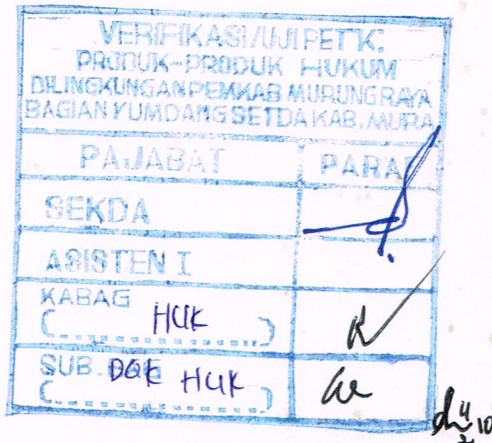 VERIFIKASI/UJI PETIK:
PRODUK-PRODUK HUKUM
DILINGKUNGAN PEMKAB MURUNG RAYA
BAGIAN KUMDANG SETDA KAB. MURA
PAJABAT PARAF
SEKDA
ASISTEN I
KABAG
( HUK )
SUB. DOK HUK
( )